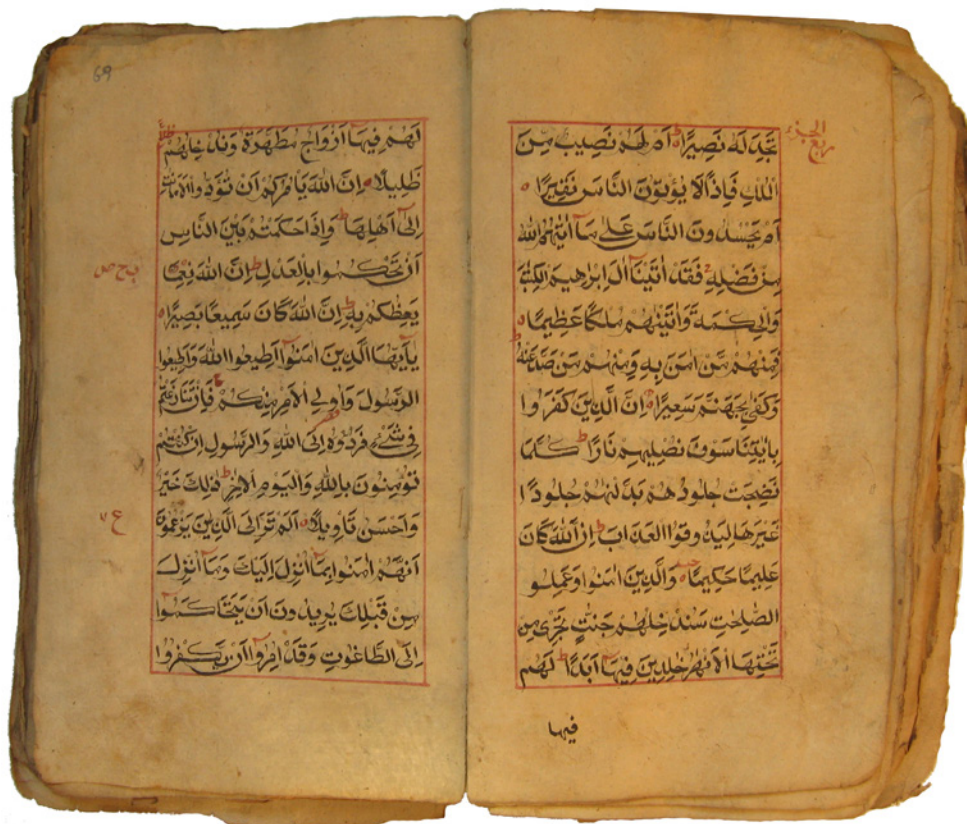 ربع الجزء
تَجِدَ لَهُ نَصِيرًا ط اَمْ لَهُمْ نَصِيبٌ مِّنَ
الْمُلْكِ فَاِذًا لَّا يُؤْتُونَ النَّاسَ نَقِيرًا
اَمْ يَحْسُدُونَ النَّاسَ عَلٰى مَا اٰتٰىهُمُ اللّٰهُ
مِنْ فَضْلِهٖ فَقَدْ اٰتَيْنَا اٰلَ اِبْرٰهِيمَ الْكِتٰبَ
وَالْحِكْمَةَ وَاٰتَيْنٰهُمْ مُلْكًا عَظِيمًا
فَمِنْهُمْ مَّنْ اٰمَنَ بِهٖ وَمِنْهُمْ مَنْ صَدَّ عَنْهُ ط
وَكَفٰى بِجَهَنَّمَ سَعِيرًا اِنَّ الَّذِينَ كَفَرُوا
بِاٰيٰتِنَا سَوْفَ نُصْلِيهِمْ نَارًا ط كُلَّمَا
نَضِجَتْ جُلُودُهُمْ بَدَّلْنٰهُمْ جُلُودًا
غَيْرَهَا لِيَذُوقُوا الْعَذَابَ ط اِنَّ اللّٰهَ كَانَ
عَلِيمًا حَكِيمًا وَالَّذِينَ اٰمَنُوا وَعَمِلُو
الصّٰلِحٰتِ سَنُدْخِلُهُمْ جَنّٰتٍ تَجْرِى مِن
تَحْتِهَا الْاَنْهٰرُ خٰلِدِينَ فِيهَا اَبَدًا ط لَهُمْ
فيها
69
لَهُمْ فِيهَا اَزْوَاجٌ مُطَهَّرَةٌ وَنُدْخِلُهُمْ ظِلًّا
ظَلِيلًا اِنَّ اللّٰهَ يَاْمُرُكُمْ اَنْ تُؤَدُّوا الْاَمٰنٰتِ
اِلٰى اَهْلِهَا ط وَاِذَا حَكَمْتُمْ بَيْنَ النَّاسِ
اَنْ تَحْكُمُوا بِالْعَدْلِ ط اِنَّ اللّٰهَ نِعِمَّا
يَعِظُكُمْ بِهٖ ط اِنَّ اللّٰهَ كَانَ سَمِيعًا بَصِيرًا
يٰاَيُّهَا الَّذِينَ اٰمَنُوا اَطِيعُوا اللّٰهَ وَاَطِيعُوا
الرَّسُولَ وَاُولِى الْاَمْرِ مِنْكُمْ فَاِنْ تَنَازَعْتُمْ
فِى شَىْءٍ فَرُدُّوهُ اِلَى اللّٰهِ وَالرَّسُولِ اِنْ كُنْتُمْ
تُؤْمِنُونَ بِاللّٰهِ وَالْيَوْمِ الْاٰخِرِ ط ذٰلِكَ خَيْرٌ
وَاَحْسَنُ تَاْوِيلًا اَلَمْ تَرَ اِلَى الَّذِينَ يَزْعُمُونَ
ع
اَنَّهُمْ اٰمَنُوا بِمَا اُنْزِلَ اِلَيْكَ وَمَا اُنْزِلَ
مِنْ قَبْلِكَ يُرِيدُونَ اَنْ يَتَحَاكَمُوا
اِلَى الطَّاغُوتِ وَقَدْ اُمِرُوا اَنْ يَكْفُرُوا